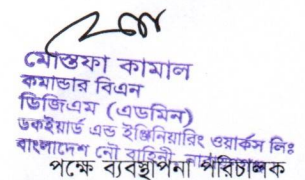 মোস্তফা কামাল
কমান্ডার বিএন
ডিজিএম (এডমিন)
ডকইয়ার্ড এন্ড ইঞ্জিনিয়ারিং ওয়ার্কস লিঃ
বাংলাদেশ নৌ বাহিনী
পক্ষে ব্যবস্থাপনা পরিচালক